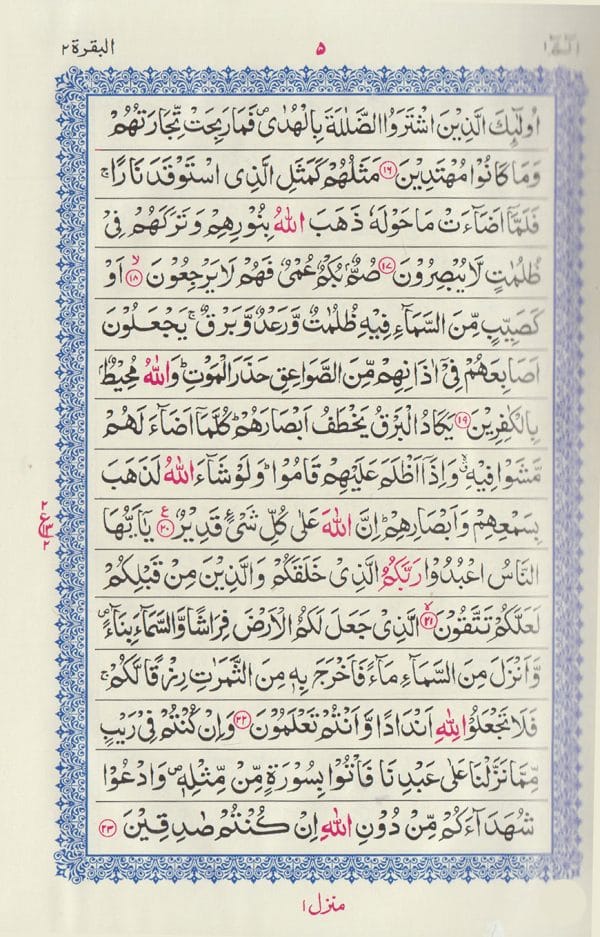 الٓمّٓ ١
٥
البقرة ٢
اُولٰٓئِكَ الَّذِيْنَ اشْتَرَوُا الضَّلٰلَةَ بِالْهُدٰى ۪ فَمَا رَبِحَتْ تِّجَارَتُهُمْ
وَمَا كَانُوْا مُهْتَدِيْنَ ۝١٦ مَثَلُهُمْ كَمَثَلِ الَّذِى اسْتَوْقَدَ نَارًا ۚ
فَلَمَّآ اَضَآءَتْ مَا حَوْلَهٗ ذَهَبَ اللّٰهُ بِنُوْرِهِمْ وَتَرَكَهُمْ فِيْ
ظُلُمٰتٍ لَّا يُبْصِرُوْنَ ۝١٧ صُمٌّۢ بُكْمٌ عُمْيٌ فَهُمْ لَا يَرْجِعُوْنَ ۙ۝١٨ اَوْ
كَصَيِّبٍ مِّنَ السَّمَآءِ فِيْهِ ظُلُمٰتٌ وَّرَعْدٌ وَّبَرْقٌ ۚ يَجْعَلُوْنَ
اَصَابِعَهُمْ فِيْٓ اٰذَانِهِمْ مِّنَ الصَّوَاعِقِ حَذَرَ الْمَوْتِ ؕ وَاللّٰهُ مُحِيْطٌۢ
بِالْكٰفِرِيْنَ ۝١٩ يَكَادُ الْبَرْقُ يَخْطَفُ اَبْصَارَهُمْ ؕ كُلَّمَآ اَضَآءَ لَهُمْ
مَّشَوْا فِيْهِ ۙۗ وَاِذَآ اَظْلَمَ عَلَيْهِمْ قَامُوْا ؕ وَلَوْ شَآءَ اللّٰهُ لَذَهَبَ
بِسَمْعِهِمْ وَاَبْصَارِهِمْ ؕ اِنَّ اللّٰهَ عَلٰى كُلِّ شَيْءٍ قَدِيْرٌ ۝٢٠ۧ يٰٓاَيُّهَا
النَّاسُ اعْبُدُوْا رَبَّكُمُ الَّذِيْ خَلَقَكُمْ وَالَّذِيْنَ مِنْ قَبْلِكُمْ
لَعَلَّكُمْ تَتَّقُوْنَ ۙ۝٢١ الَّذِيْ جَعَلَ لَكُمُ الْاَرْضَ فِرَاشًا وَّالسَّمَآءَ بِنَآءً ۪
وَّاَنْزَلَ مِنَ السَّمَآءِ مَآءً فَاَخْرَجَ بِهٖ مِنَ الثَّمَرٰتِ رِزْقًا لَّكُمْ ۚ
فَلَا تَجْعَلُوْا لِلّٰهِ اَنْدَادًا وَّاَنْتُمْ تَعْلَمُوْنَ ۝٢٢ وَاِنْ كُنْتُمْ فِيْ رَيْبٍ
مِّمَّا نَزَّلْنَا عَلٰى عَبْدِنَا فَاْتُوْا بِسُوْرَةٍ مِّنْ مِّثْلِهٖ ۪ وَادْعُوْا
شُهَدَآءَكُمْ مِّنْ دُوْنِ اللّٰهِ اِنْ كُنْتُمْ صٰدِقِيْنَ ۝٢٣
٢
ع
١٣
٢
منزل ١